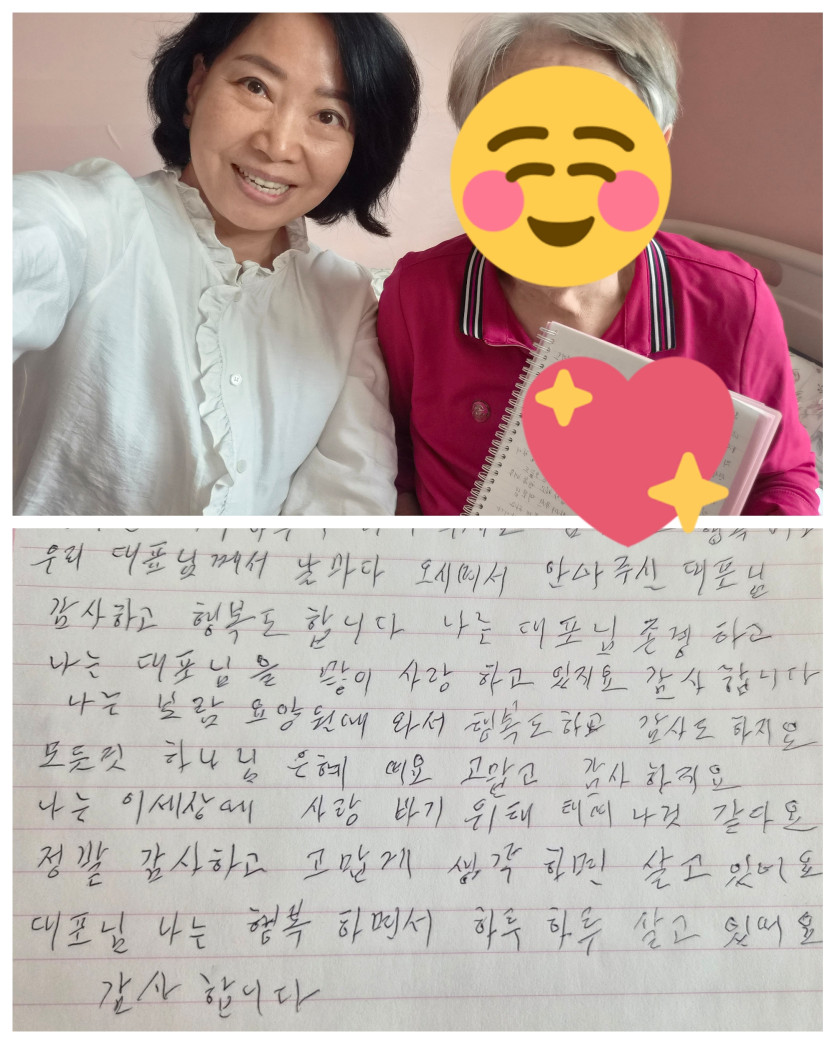 우리 대표님께서 날마다 오시며서 안아주신 대표님
감사하고 행복도 합니다 나는 대표님 존경 하고
나는 대표님을 많이 사랑 하고 있지요 감사 합니다
나는 보람 요양원에 와서 행복도하고 감사도 하지요
모듯것 하나님 은혜 에요 고맙고 감사 하지요
나는 이세상에 사랑 바기 위해 태어 나것 같다요
정말 감사하고 고맙게 생각 하면 살고 있어요
대표님 나는 행복 하면서 하루 하루 살고 있어요
감사 합니다